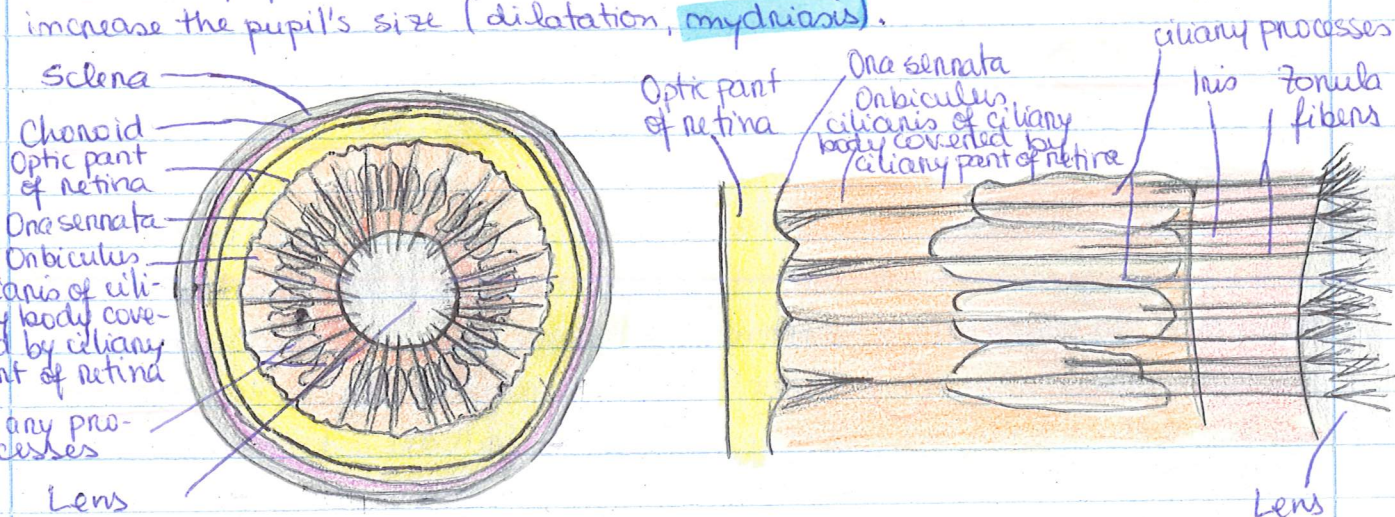 increase the pupil's size (dilatation, mydriasis).
Sclera
Choroid
Optic part
of retina
Ora serrata
Orbiculus
iaris of cili-
y body cove-
d by ciliary
rt of retina
ary pro-
cesses
Lens
Optic part
of retina
Ora serrata
Orbiculus
ciliaris of ciliary
body covered by
ciliary part of retina
ciliary processes
Iris
Zonula
fibers
Lens